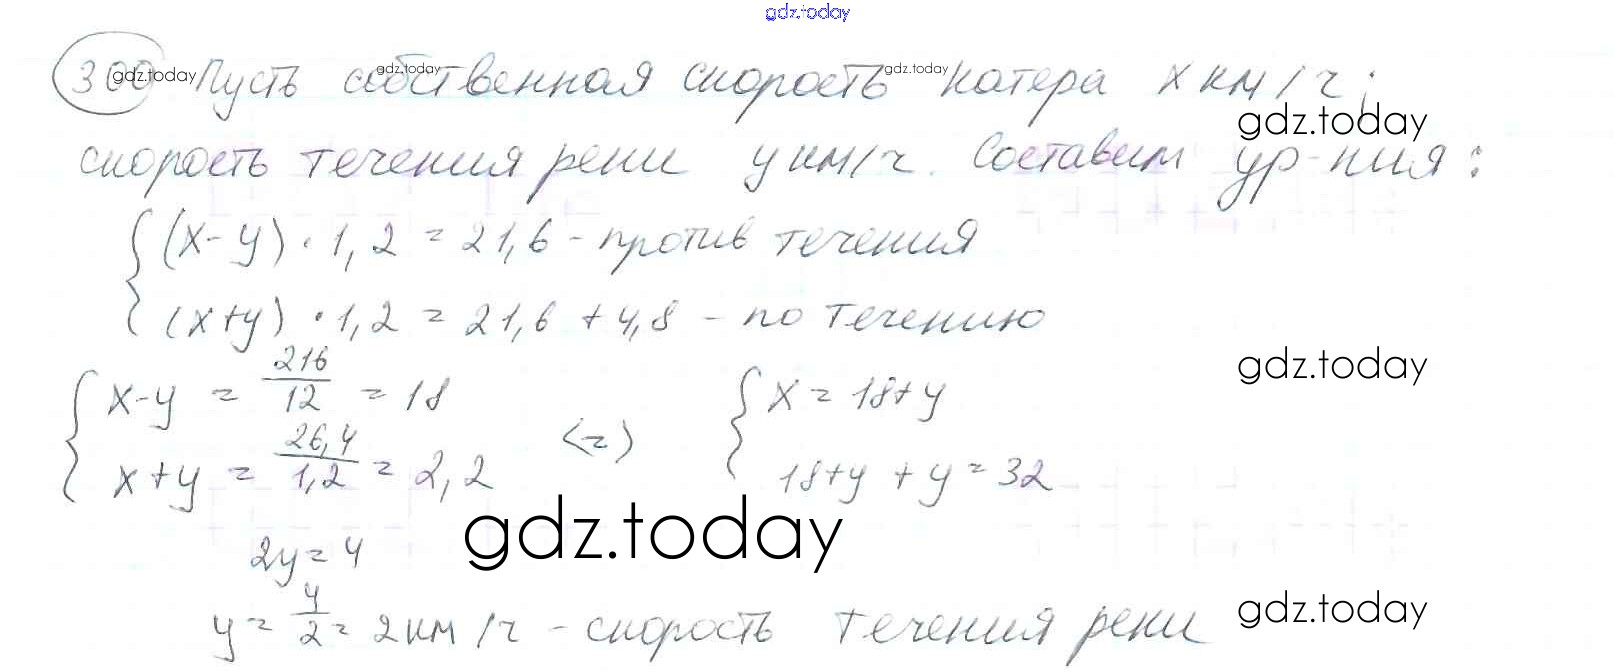 gdz.today
300 gdz.today Пусть собственная gdz.today скорость gdz.today катера x км/ч;
gdz.today
скорость течения реки y км/ч. Составим ур-ния:
(x-y)·1,2=21,6 - против течения
(x+y)·1,2=21,6+4,8 - по течению
gdz.today
x-y = 216/12 = 18 <=> x=18+y
x+y = 26,4/1,2 = 2,2 18+y+y=32
gdz.today
2y=4
y=4/2=2км/ч - скорость течения реки
gdz.today